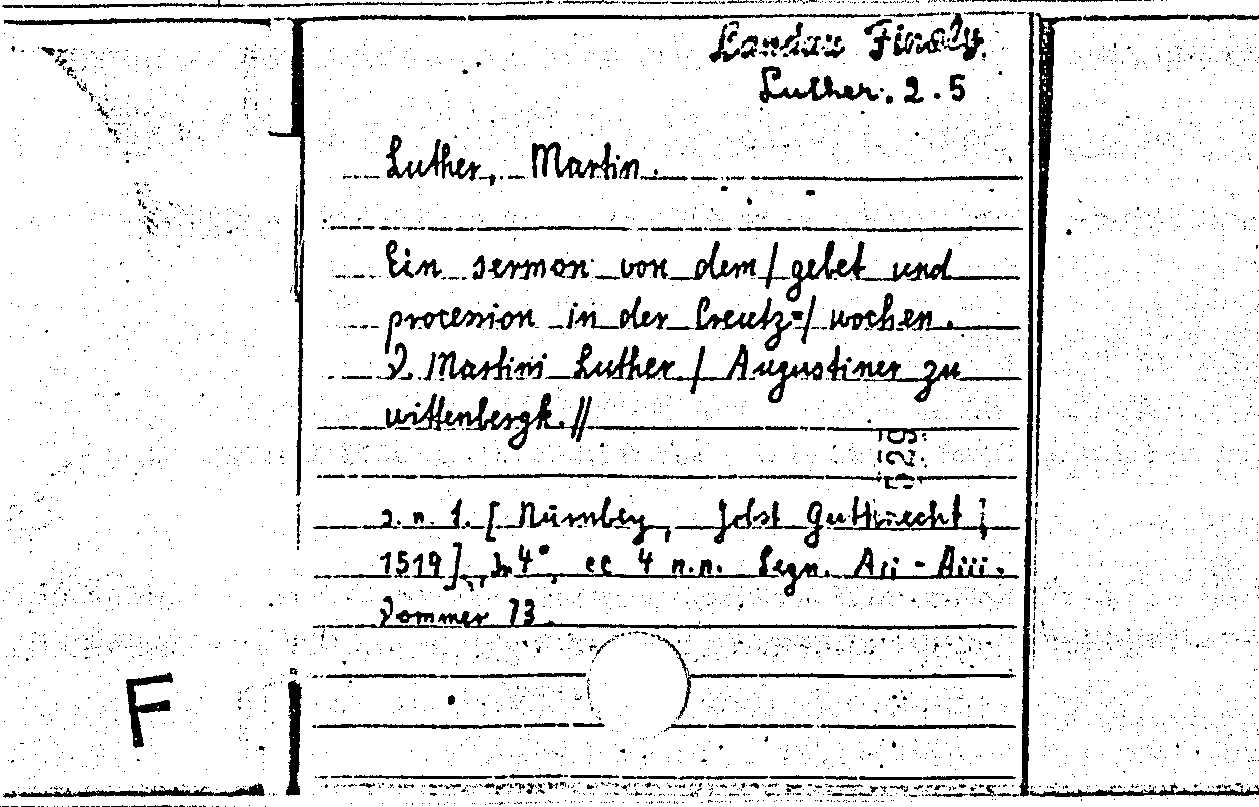 Landau Finaly.
Luther. 2.5
Luther, Martin.
Ein sermon von dem / gebet und
procession in der Creutz=/ wochen.
D. Martini Luther / Augustiner zu
wittenbergk. //
529
s. n. t. [ Nürnberg, Jobst Guttknecht
1519], In 4°, cc 4 n.n. Segn. Aii - Aiii.
Dommer 73.
F